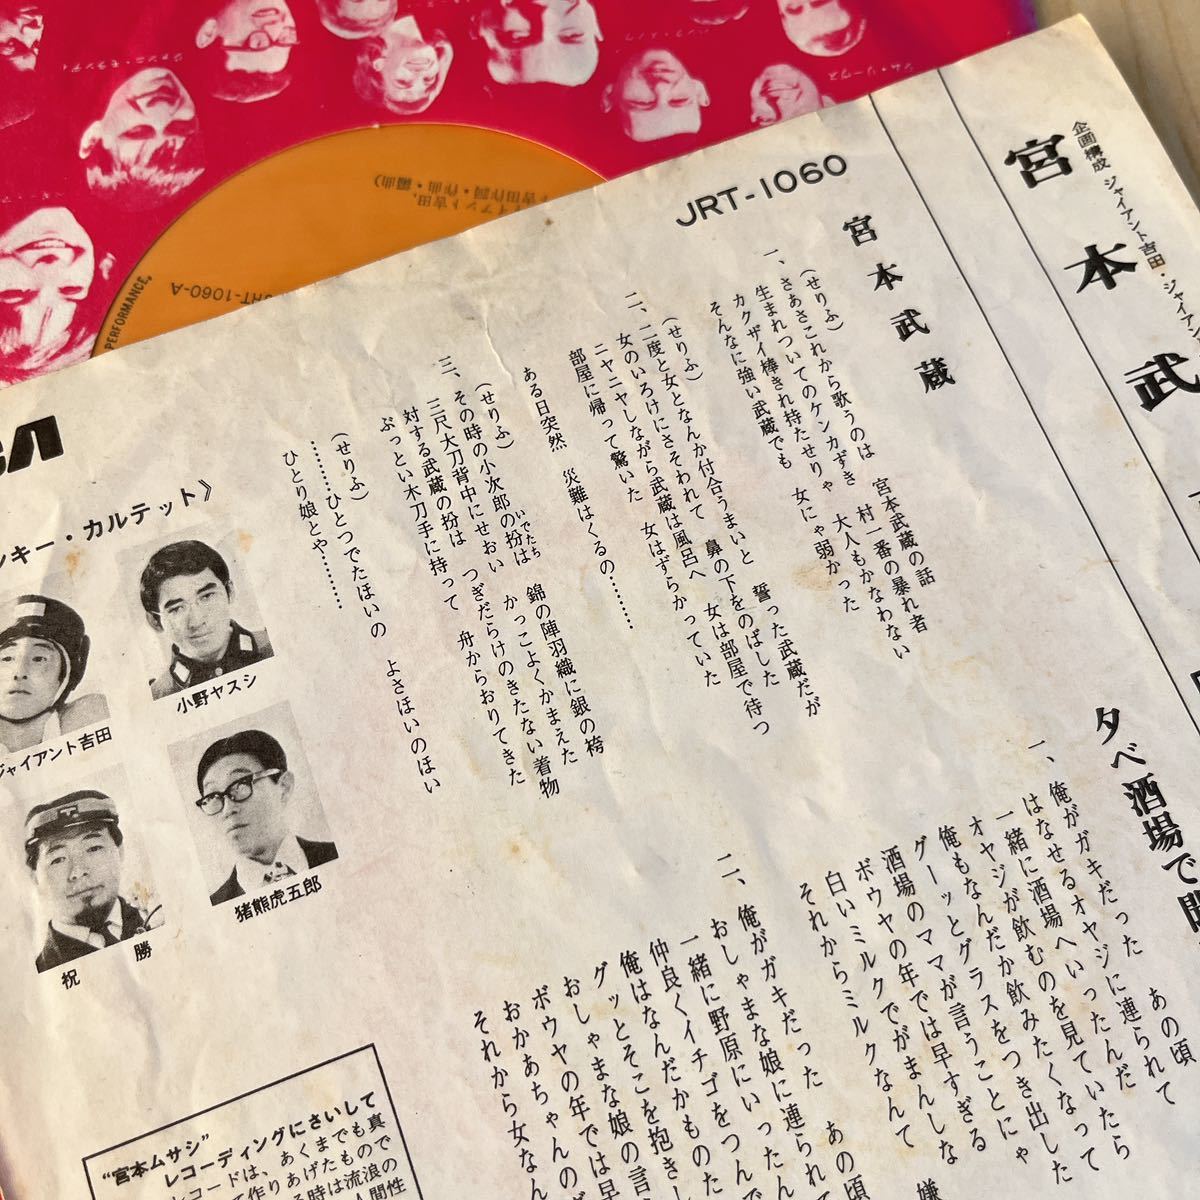 宮本武
企画構成 ジャイアント吉田・ジャイアン
JRT-1060
宮本武蔵
(せりふ)
さあさこれから歌うのは 宮本武蔵の話
一、生まれついてのケンカずき 村一番の暴れ者
カクザイ棒きれ持たせりゃ 大人もかなわない
そんなに強い武蔵でも 女にゃ弱かった
(せりふ)
二、二度と女となんか付合うまいと 誓った武蔵だが
女のいろけにさそわれて 鼻の下をのばした
ニヤニヤしながら武蔵は風呂へ 女は部屋で待つ
部屋に帰って驚いた 女はずらかっていた
ある日突然 災難はくるの………
(せりふ)
三、その時の小次郎の扮は 錦の陣羽織に銀の袴
いでたち
三尺大刀背中にせおい かっこよくかまえた
対する武蔵の扮は つぎだらけのきたない着物
ぶっとい木刀手に持って 舟からおりてきた
(せりふ)
………ひとつでたほいの よさほいのほい
ひとり娘とや………
夕べ酒場で
一、俺がガキだった あの頃
はなせるオヤジに連られて
一緒に酒場へいったんだ
オヤジが飲むのを見ていたら
俺もなんだか飲みたくなって
グーッとグラスをつき出した
酒場のママが言うことにゃ
ボウヤの年では早すぎる
白いミルクでがまんしな
それからミルクなんて 嫌
二、俺がガキだった あの頃
おしゃまな娘に連られて
一緒に野原にいったんだ
仲良くイチゴをつんで
俺はなんだかものた
グッとそこを抱きし
おしゃまな娘の言う
ボウヤの年では早
おかあちゃんの
それから女なん
ンキー・カルテット》
小野ヤスシ
ジャイアント吉田
猪熊虎五郎
祝 勝
“宮本ムサシ”
レコーディングにさいして
レコードは、あくまでも真
て作りあげたもので
る時は流浪の
人間性
PERFORMANCE.
JRT-1060-A
イアント吉田,
ト吉田作詞・作曲・編曲)
ジャンニ・モランディ
ジム・リーヴス